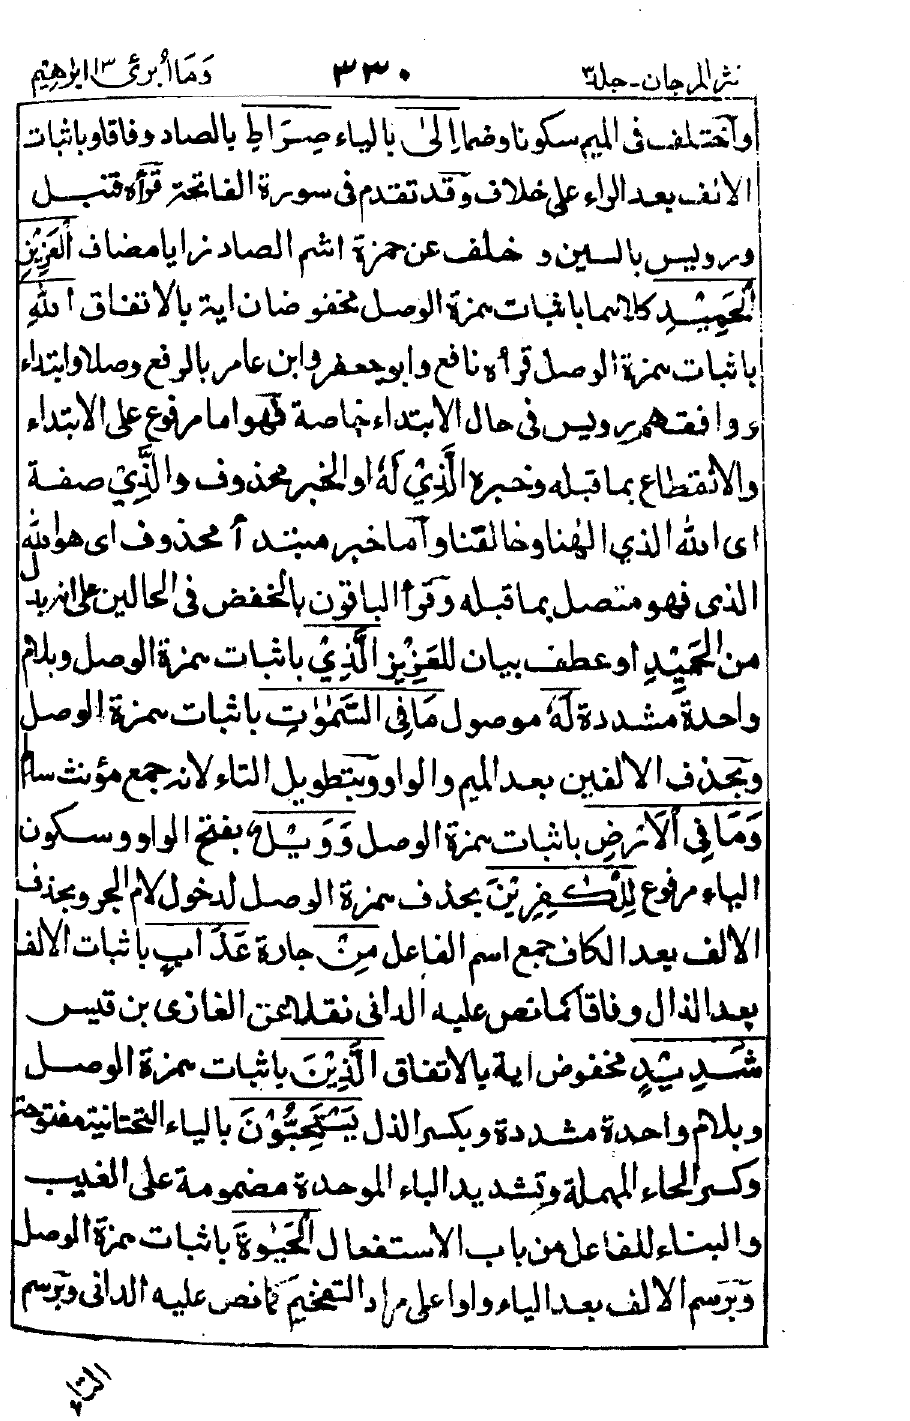 نثر المرجان - جلد ٣ ٣٣٠ وَمَا أُبرئ ١٣ ابراهيم
واختلف فى الميم سكونا وضما إِلىٰ بالياء صِرَاطِ بالصاد وفاقا وباثبات
الالف بعد الراء على خلاف وقد تقدم فى سورة الفاتحة قرأه قنبل
ورويس بالسين و خلف عن حمزة اشم الصاد زايا مضاف الْعَزِيْزِ
الْحَمِيْدِ كلاهما باثبات همزة الوصل مخفوضان اية بالاتفاق اللهِ
باثبات همزة الوصل قرأه نافع وابو جعفر وابن عامر بالرفع وصلا وابتداء
ووافقهم رويس فى حال الابتداء خاصة فهو اما مرفوع على الابتداء
والانقطاع بما قبله وخبره الَّذِيْ لَهٗ او الخبر محذوف والَّذِيْ صفة
اى الله الذي الٰهنا وخالقنا واما خبر مبتدأ محذوف اى هو الله
الذى فهو متصل بما قبله وقرأ الباقون بالخفض فى الحالين على انه بدل
من الْحَمِيْدِ او عطف بيان للعَزِيْزِ الَّذِيْ باثبات همزة الوصل وبلام
واحدة مشددة لَهٗ موصول مَا فِى السَّمٰوٰتِ باثبات همزة الوصل
وبحذف الالفين بعد الميم والواو وبتطويل التاء لانه جمع مؤنث سالم
وَمَا فِى الْاَرْضِ باثبات همزة الوصل وَوَيْلٌ بفتح الواو وسكون
الياء مرفوع لِلْكٰفِرِيْنَ بحذف همزة الوصل لدخول لام الجر وبحذف
الالف بعد الكاف جمع اسم الفاعل مِنْ جارة عَذَابٍ باثبات الالف
بعد الذال وفاقا كما نص عليه الدانى نقلا عن الغازى بن قيس
شَدِيْدٍ مخفوض اية بالاتفاق الَّذِيْنَ باثبات همزة الوصل
وبلام واحدة مشددة وبكسر الذل يَسْتَحِبُّوْنَ بالياء التحتانية مفتوحة
وكسر الحاء المهملة وتشديد الباء الموحدة مضمومة على الغيب
والبناء للفاعل من باب الاستفعال الْحَيٰوةَ باثبات همزة الوصل
وبرسم الالف بعد الياء واوا على مراد التفخيم كما نص عليه الدانى وبرسم